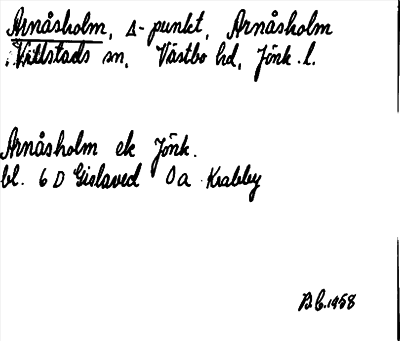 Arnåsholm, Δ-punkt, Arnåsholm
Villstads sn, Västbo hd, Jönk. l.
Arnåsholm ek Jönk.
bl. 6 D Gislaved 0a Krabby
B.C. 1958